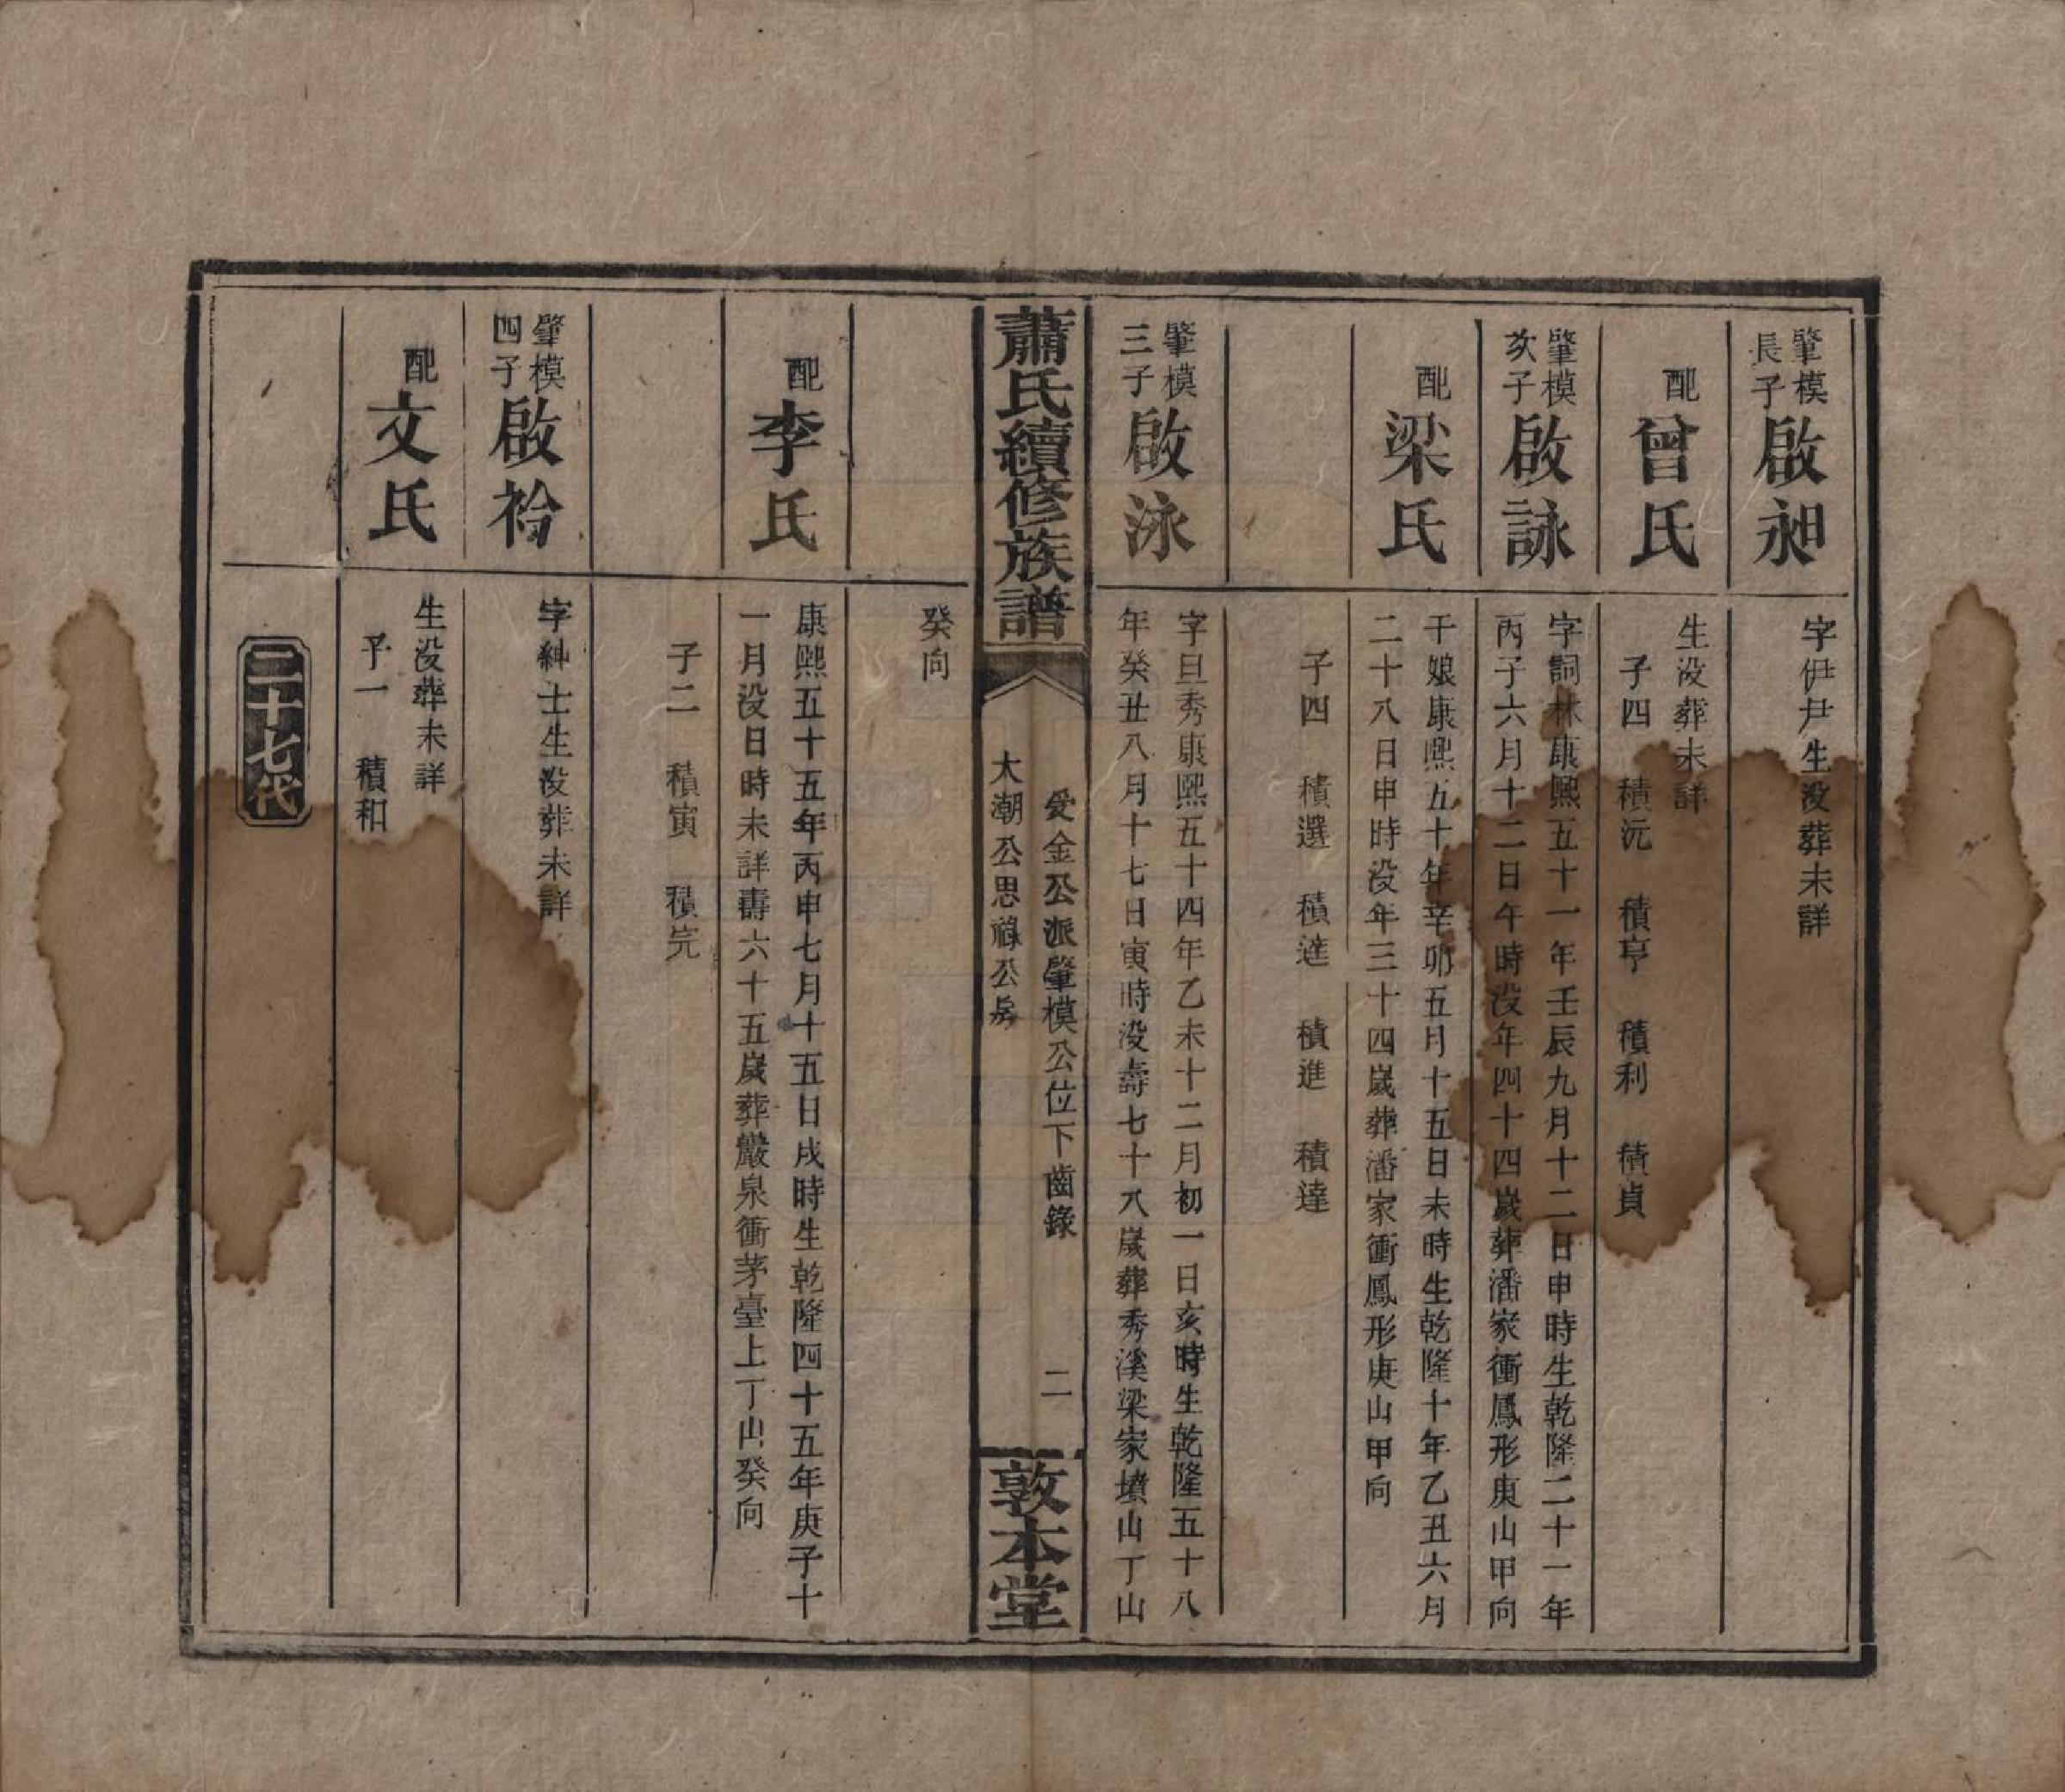 肇模
長子
啟昶
字伊尹生没葬未詳
配
曾氏
生没葬未詳
子四　積沅　積亨　積利　積貞
肇模
次子
啟詠
字詞林康熙五十一年壬辰九月十二日申時生乾隆二十一年
丙子六月十二日午時没年四十四嵗葬潘家衝鳳形庚山甲向
配
梁氏
干娘康熙五十年辛卯五月十五日未時生乾隆十年乙丑六月
二十八日申時没年三十四嵗葬潘家衝鳳形庚山甲向
子四　積選　積達　積進　積達
肇模
三子
啟泳
字旦秀康熙五十四年乙未十二月初一日亥時生乾隆五十八
年癸丑八月十七日寅時没壽七十八嵗葬秀溪梁家墳山丁山
蕭氏續修族譜
受金公派肇模公位下齒錄
大潮公思祿公房
二
敦本堂
癸向
配
李氏
康熙五十五年丙申七月十五日戌時生乾隆四十五年庚子十
一月没日時未詳壽六十五嵗葬巖泉衝茅臺上丁山癸向
子二　積寅　積完
肇模
四子
啟衿
字紳士生没葬未詳
配
文氏
生没葬未詳
子一　積和
二十七代